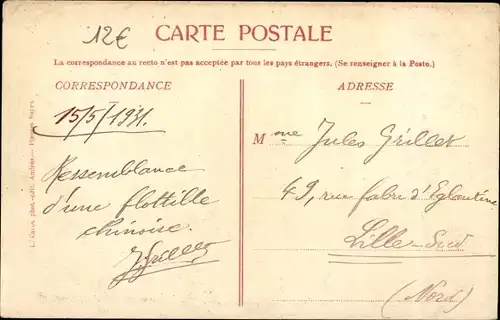 12€
CARTE POSTALE
La correspondance au recto n'est pas acceptée par tous les pays étrangers. (Se renseigner à la Poste.)
CORRESPONDANCE
ADRESSE
15/5/1931.
Mme Jules Grillet
Ressemblance
d'une flottille
chinoise.
JGrillet
49, rue fabre d'Eglantine
Lille-Sud
(Nord)
phot.-édit.